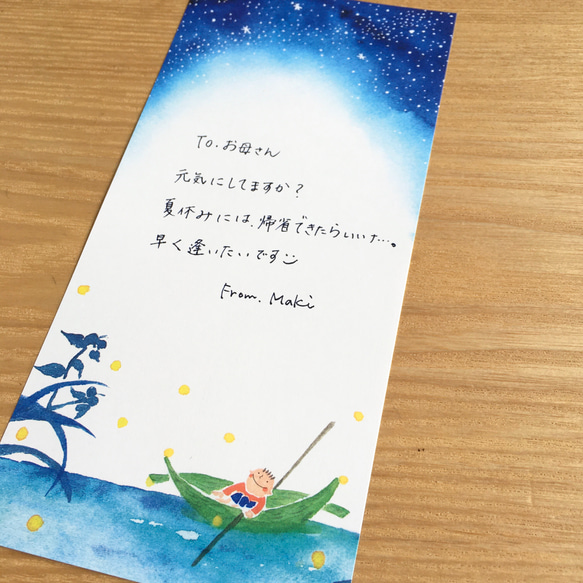 To. お母さん
元気にしてますか？
夏休みには、帰省できたらいいナ…。
早く逢いたいです
From. Maki